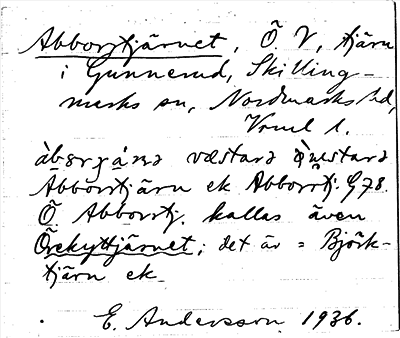 Abborrtjärnet, Ö. V, tjärn
i Gunnerud, Skilling-
marks sn, Nordmarks hd,
Vrml l.
væstarə
Abborrtjärn ek Abborrtj. G78.
Ö. Abborrtj. kallas även
Örekyttjärnet; det är = Björk-
tjärn ek.
E. Andersson 1936.